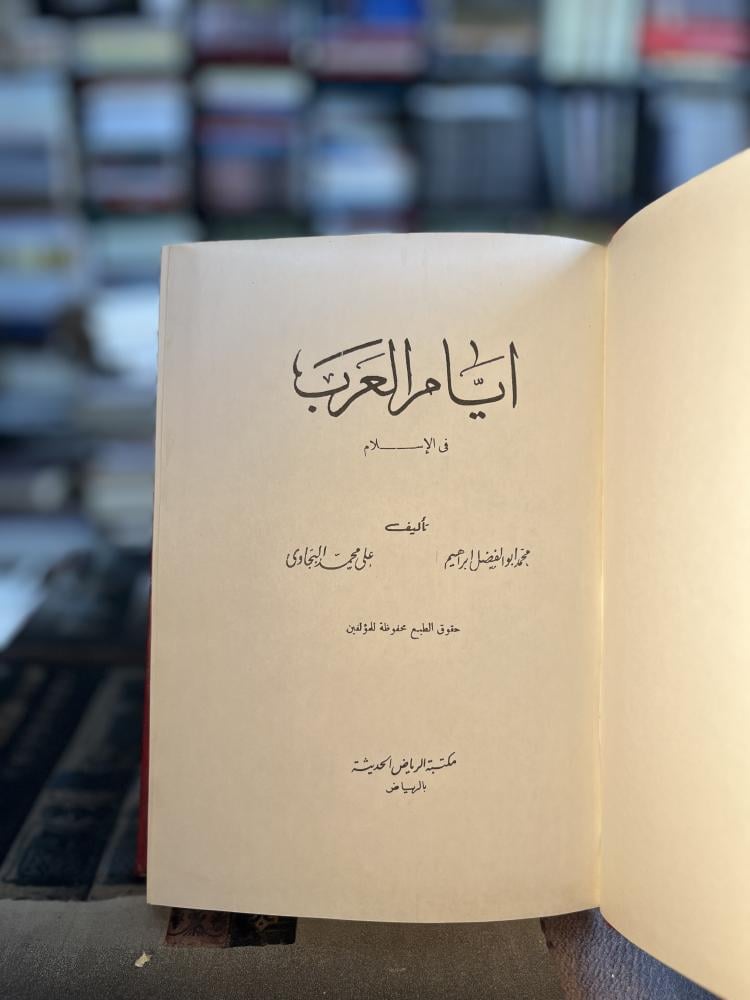 أيّام العَرَب
فى الإســلام
تأليف
محمد ابوالفضل ابراهيم على محمّد البجَاوى
حقوق الطبع محفوظة للمؤلفين
مكتبة الرياض الحديثة
بالرياض